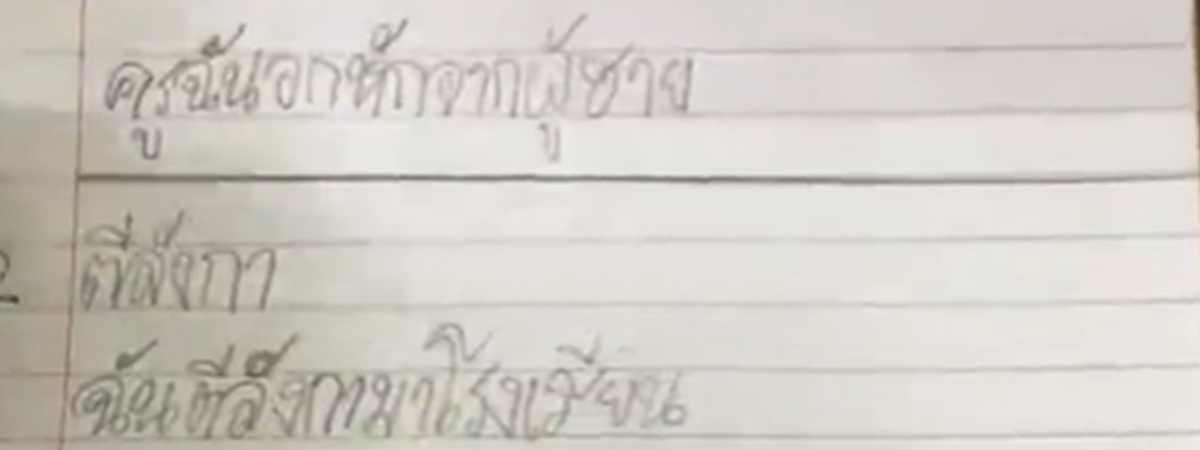 ครูฉันอกหักจากผู้ชาย
ตีลังกา
ฉันตีลังกามาโรงเรียน